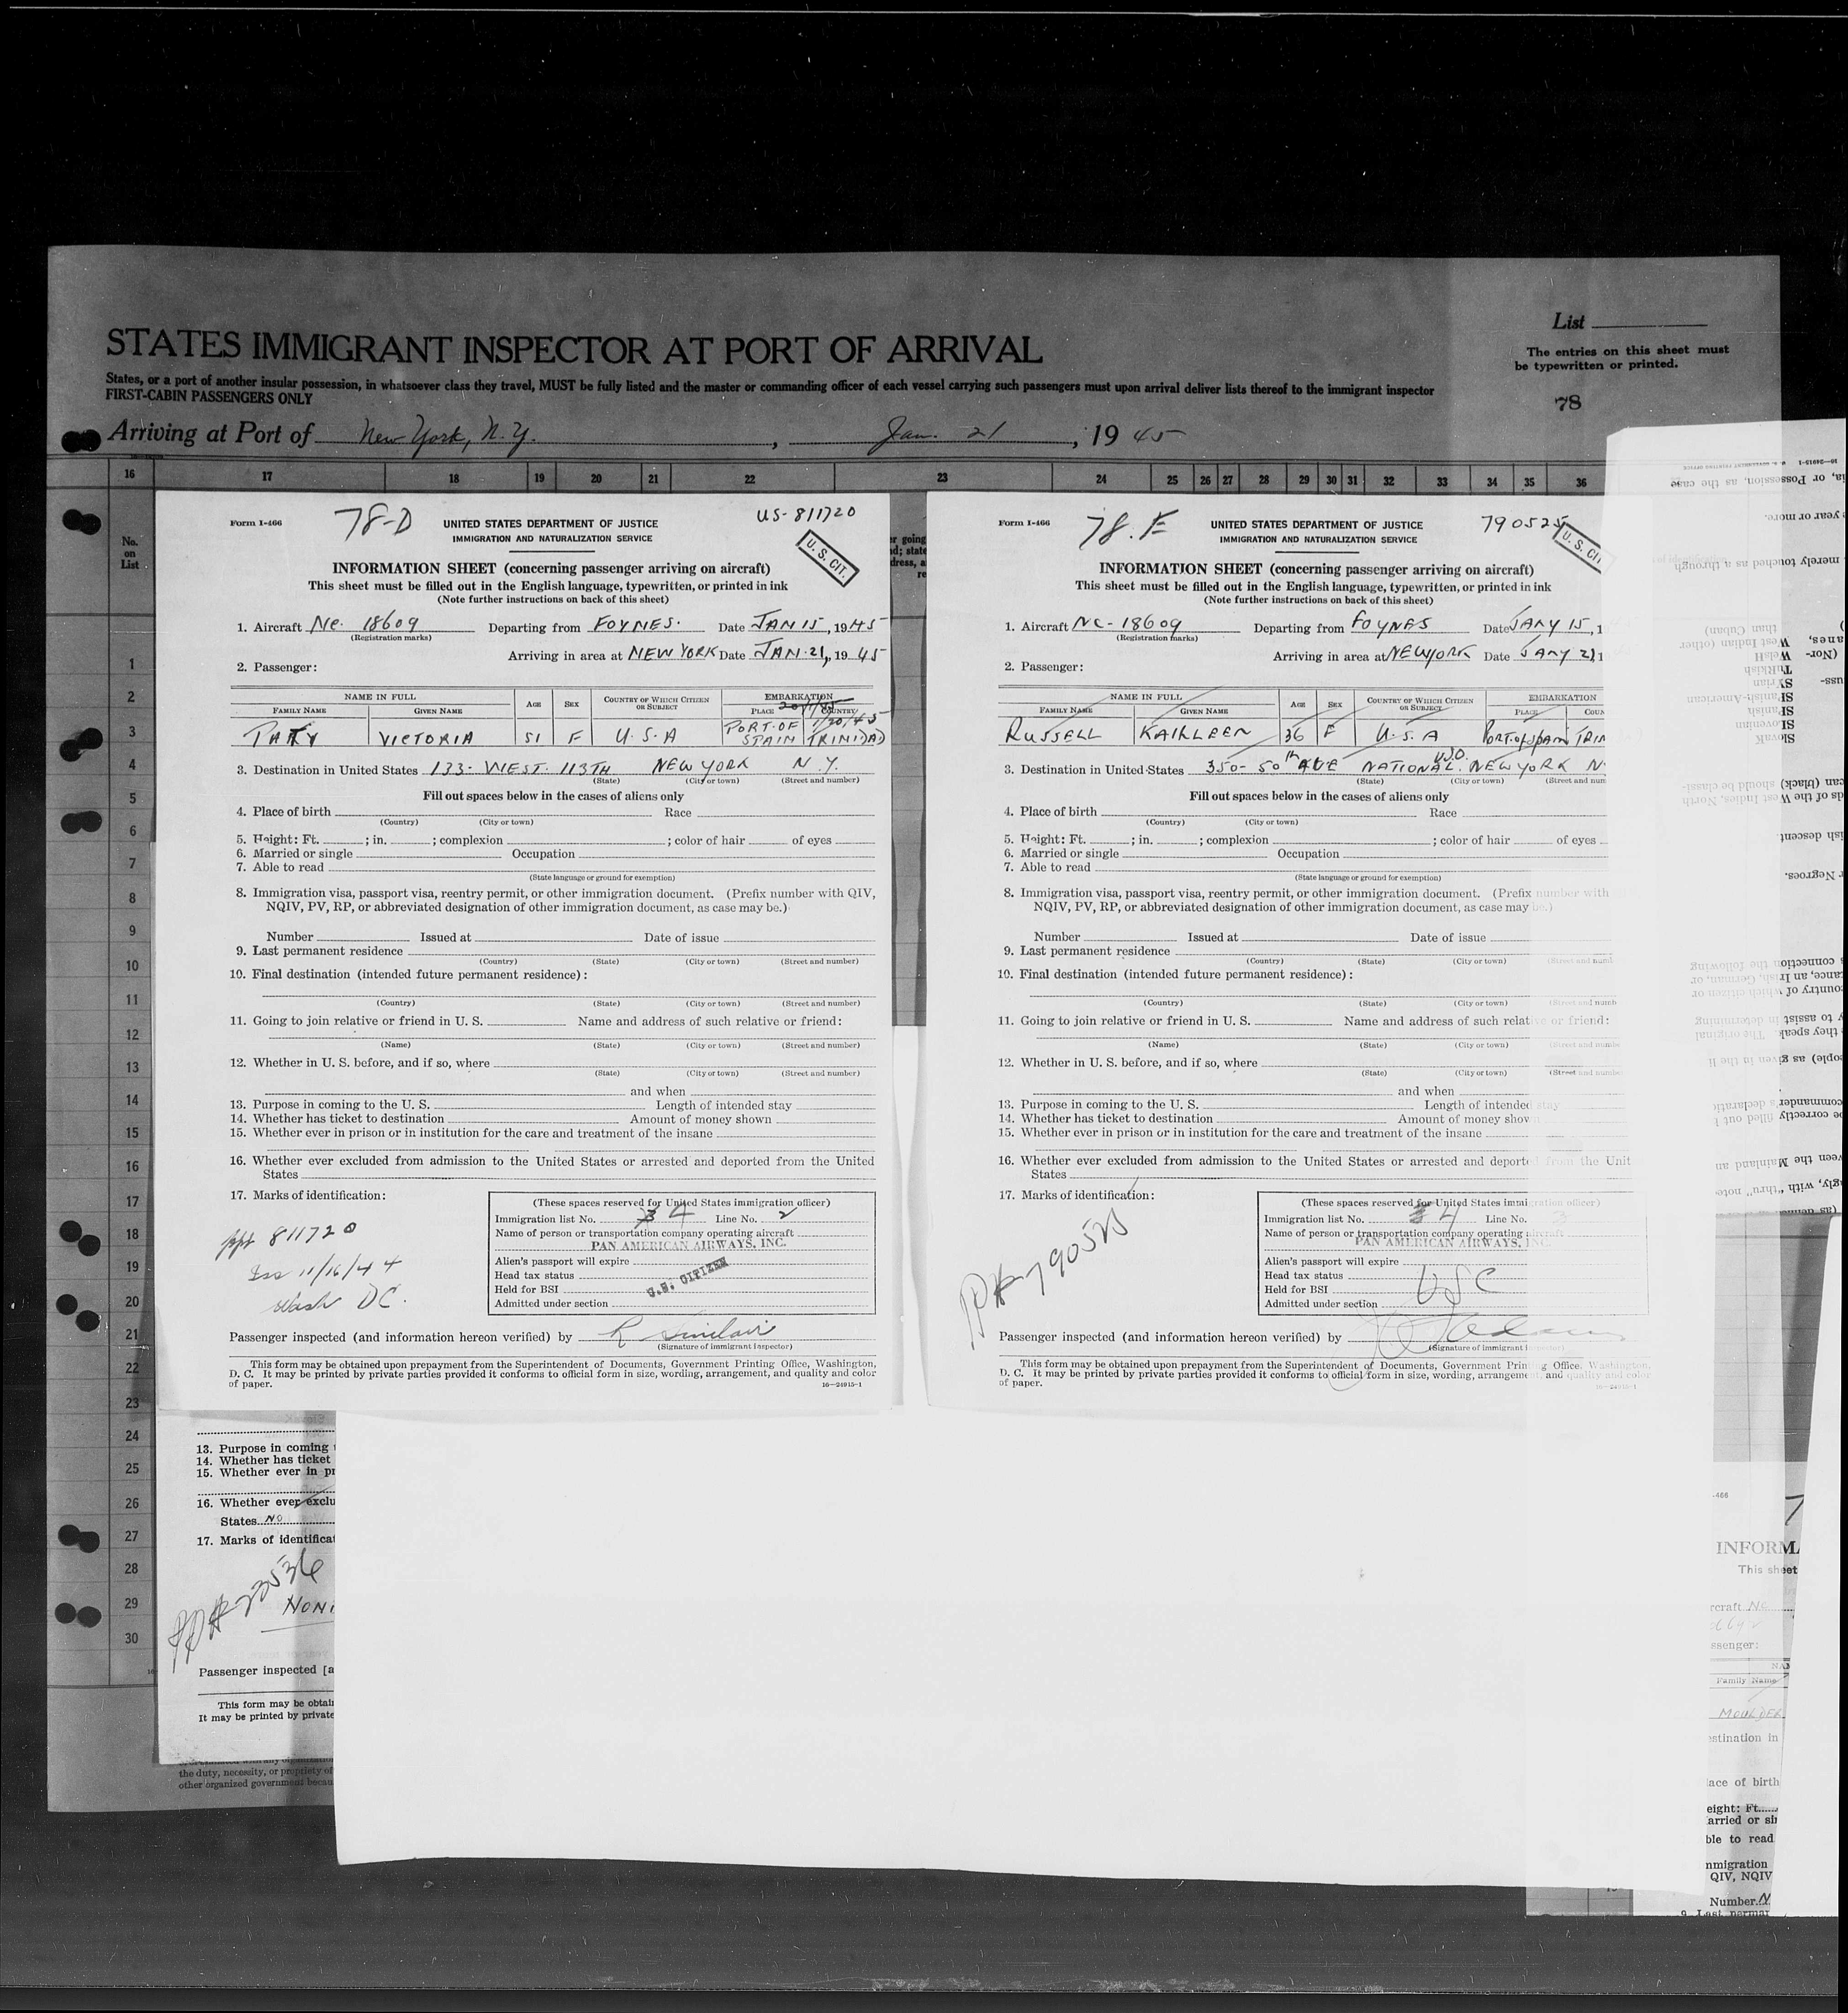 List
STATES IMMIGRANT INSPECTOR AT PORT OF ARRIVAL
The entries on this sheet must
be typewritten or printed.
States, or a port of another insular possession, in whatsoever class they travel, MUST be fully listed and the master or commanding officer of each vessel carrying such passengers must upon arrival deliver lists thereof to the immigrant inspector
FIRST-CABIN PASSENGERS ONLY
78
Arriving at Port of New York, N.Y., Jan. 21, 1945
16 17 18 19 20 21 22 23 24 25 26 27 28 29 30 31 32 33 34 35 36
No.
on
List
1
2
3
4
5
6
7
8
9
10
11
12
13
14
15
16
17
18
19
20
21
22
23
24
25
26
27
28
29
30
Form I-466
78-D
UNITED STATES DEPARTMENT OF JUSTICE
IMMIGRATION AND NATURALIZATION SERVICE
US-811720
U. S. CIT.
INFORMATION SHEET (concerning passenger arriving on aircraft)
This sheet must be filled out in the English language, typewritten, or printed in ink
(Note further instructions on back of this sheet)
1. Aircraft Nc. 18609 Departing from FOYNES. Date JAN 15, 1945
(Registration marks)
Arriving in area at NEW YORK Date JAN. 21, 1945
2. Passenger:
NAME IN FULL AGE SEX COUNTRY OF WHICH CITIZEN OR SUBJECT EMBARKATION
FAMILY NAME GIVEN NAME PLACE COUNTRY
1/20/45
VICTORIA 51 F U.S.A PORT-OF SPAIN TRINIDAD
3. Destination in United States 133- WEST. 113TH NEW YORK N.Y.
(State) (City or town) (Street and number)
Fill out spaces below in the cases of aliens only
4. Place of birth Race
(Country) (City or town)
5. Height: Ft. ; in. ; complexion ; color of hair of eyes
6. Married or single Occupation
7. Able to read
(State language or ground for exemption)
8. Immigration visa, passport visa, reentry permit, or other immigration document. (Prefix number with QIV,
NQIV, PV, RP, or abbreviated designation of other immigration document, as case may be.)
Number Issued at Date of issue
9. Last permanent residence
(Country) (State) (City or town) (Street and number)
10. Final destination (intended future permanent residence):
(Country) (State) (City or town) (Street and number)
11. Going to join relative or friend in U. S. Name and address of such relative or friend:
(Name) (State) (City or town) (Street and number)
12. Whether in U. S. before, and if so, where
(State) (City or town) (Street and number)
and when
13. Purpose in coming to the U. S. Length of intended stay
14. Whether has ticket to destination Amount of money shown
15. Whether ever in prison or in institution for the care and treatment of the insane
16. Whether ever excluded from admission to the United States or arrested and deported from the United
States
17. Marks of identification:
ppt 811720
Iss 11/16/44
Wash DC.
(These spaces reserved for United States immigration officer)
Immigration list No. 4 Line No. 2
Name of person or transportation company operating aircraft
PAN AMERICAN AIRWAYS, INC.
Alien's passport will expire
Head tax status
Held for BSI
U.S. CITIZEN
Admitted under section
Passenger inspected (and information hereon verified) by R Sinclair
(Signature of immigrant inspector)
This form may be obtained upon prepayment from the Superintendent of Documents, Government Printing Office, Washington,
D. C. It may be printed by private parties provided it conforms to official form in size, wording, arrangement, and quality and color
of paper.
16—24915-1
Form I-466
78.E
UNITED STATES DEPARTMENT OF JUSTICE
IMMIGRATION AND NATURALIZATION SERVICE
790525
U. S. CI
INFORMATION SHEET (concerning passenger arriving on aircraft)
This sheet must be filled out in the English language, typewritten, or printed in ink
(Note further instructions on back of this sheet)
1. Aircraft NC-18609 Departing from FOYNES Date JANY 15, 1
(Registration marks)
Arriving in area at NEWYORK Date JANY 21, 1
2. Passenger:
NAME IN FULL AGE SEX COUNTRY OF WHICH CITIZEN OR SUBJECT EMBARKATION
FAMILY NAME GIVEN NAME PLACE COUN
RUSSELL KATHLEEN 36 F U.S.A PORT-of-SPAIN TRIN
3. Destination in United States 350- 50th AVE NATIONAL. NEW YORK N
(State) (City or town) (Street and num
Fill out spaces below in the cases of aliens only
4. Place of birth Race
(Country) (City or town)
5. Height: Ft. ; in. ; complexion ; color of hair of eyes
6. Married or single Occupation
7. Able to read
(State language or ground for exemption)
8. Immigration visa, passport visa, reentry permit, or other immigration document. (Prefix number with
NQIV, PV, RP, or abbreviated designation of other immigration document, as case may be.)
Number Issued at Date of issue
9. Last permanent residence
(Country) (State) (City or town) (Street and numb
10. Final destination (intended future permanent residence):
(Country) (State) (City or town) (Street and numb
11. Going to join relative or friend in U. S. Name and address of such relative or friend:
(Name) (State) (City or town) (Street and numbe
12. Whether in U. S. before, and if so, where
(State) (City or town) (Street and numbe
and when
13. Purpose in coming to the U. S. Length of intended stay
14. Whether has ticket to destination Amount of money shown
15. Whether ever in prison or in institution for the care and treatment of the insane
16. Whether ever excluded from admission to the United States or arrested and deported from the Unit
States
17. Marks of identification:
790525
(These spaces reserved for United States immigration officer)
Immigration list No. 4 Line No. 3
Name of person or transportation company operating aircraft
PAN AMERICAN AIRWAYS, INC.
Alien's passport will expire
Head tax status
Held for BSI
USC
Admitted under section
Passenger inspected (and information hereon verified) by
(Signature of immigrant inspector)
This form may be obtained upon prepayment from the Superintendent of Documents, Government Printing Office, Washington,
D. C. It may be printed by private parties provided it conforms to official form in size, wording, arrangement, and quality and color
of paper.
16—24915-1
13. Purpose in coming
14. Whether has ticket
15. Whether ever in pr
16. Whether ever exclu
States NO
17. Marks of identificat
23536
NON
Passenger inspected [a
This form may be obtain
It may be printed by private
the duty, necessity, or propriety of
other organized government becau
-466
INFORM
This sheet
rcraft NC
ssenger:
Family Name
MOULDER
stination in
lace of birth
eight: Ft.
arried or sin
ble to read
nmigration
QIV, NQIV
Number N
9. Last perman